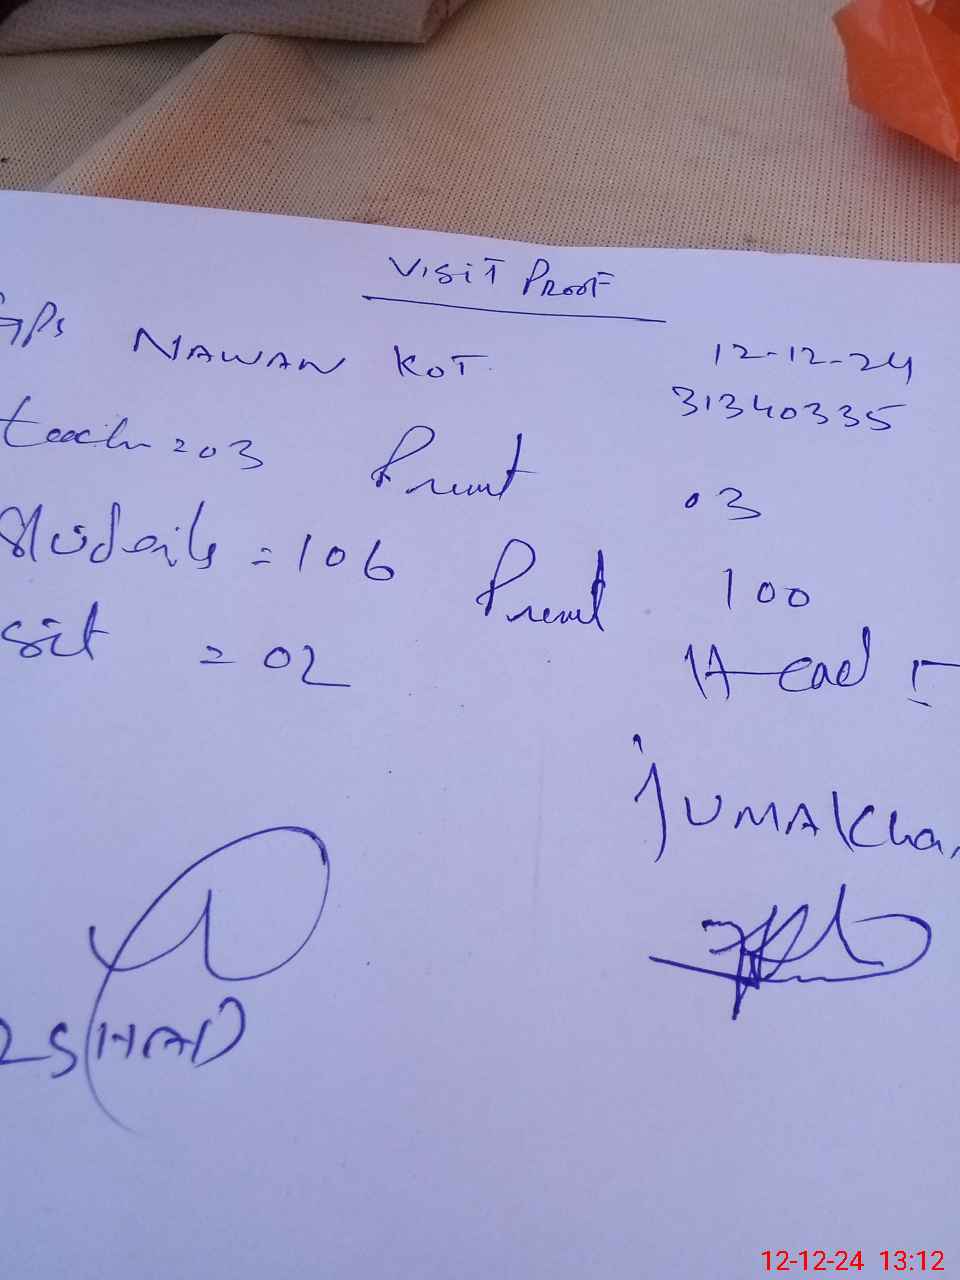 Visit Proof
GPS NAWAN KOT. 12-12-24
31340335
teach = 03 Present 03
Students = 106 Present 100
sit = 02
Head :-
JUMA Khan
RSHAD
12-12-24 13:12